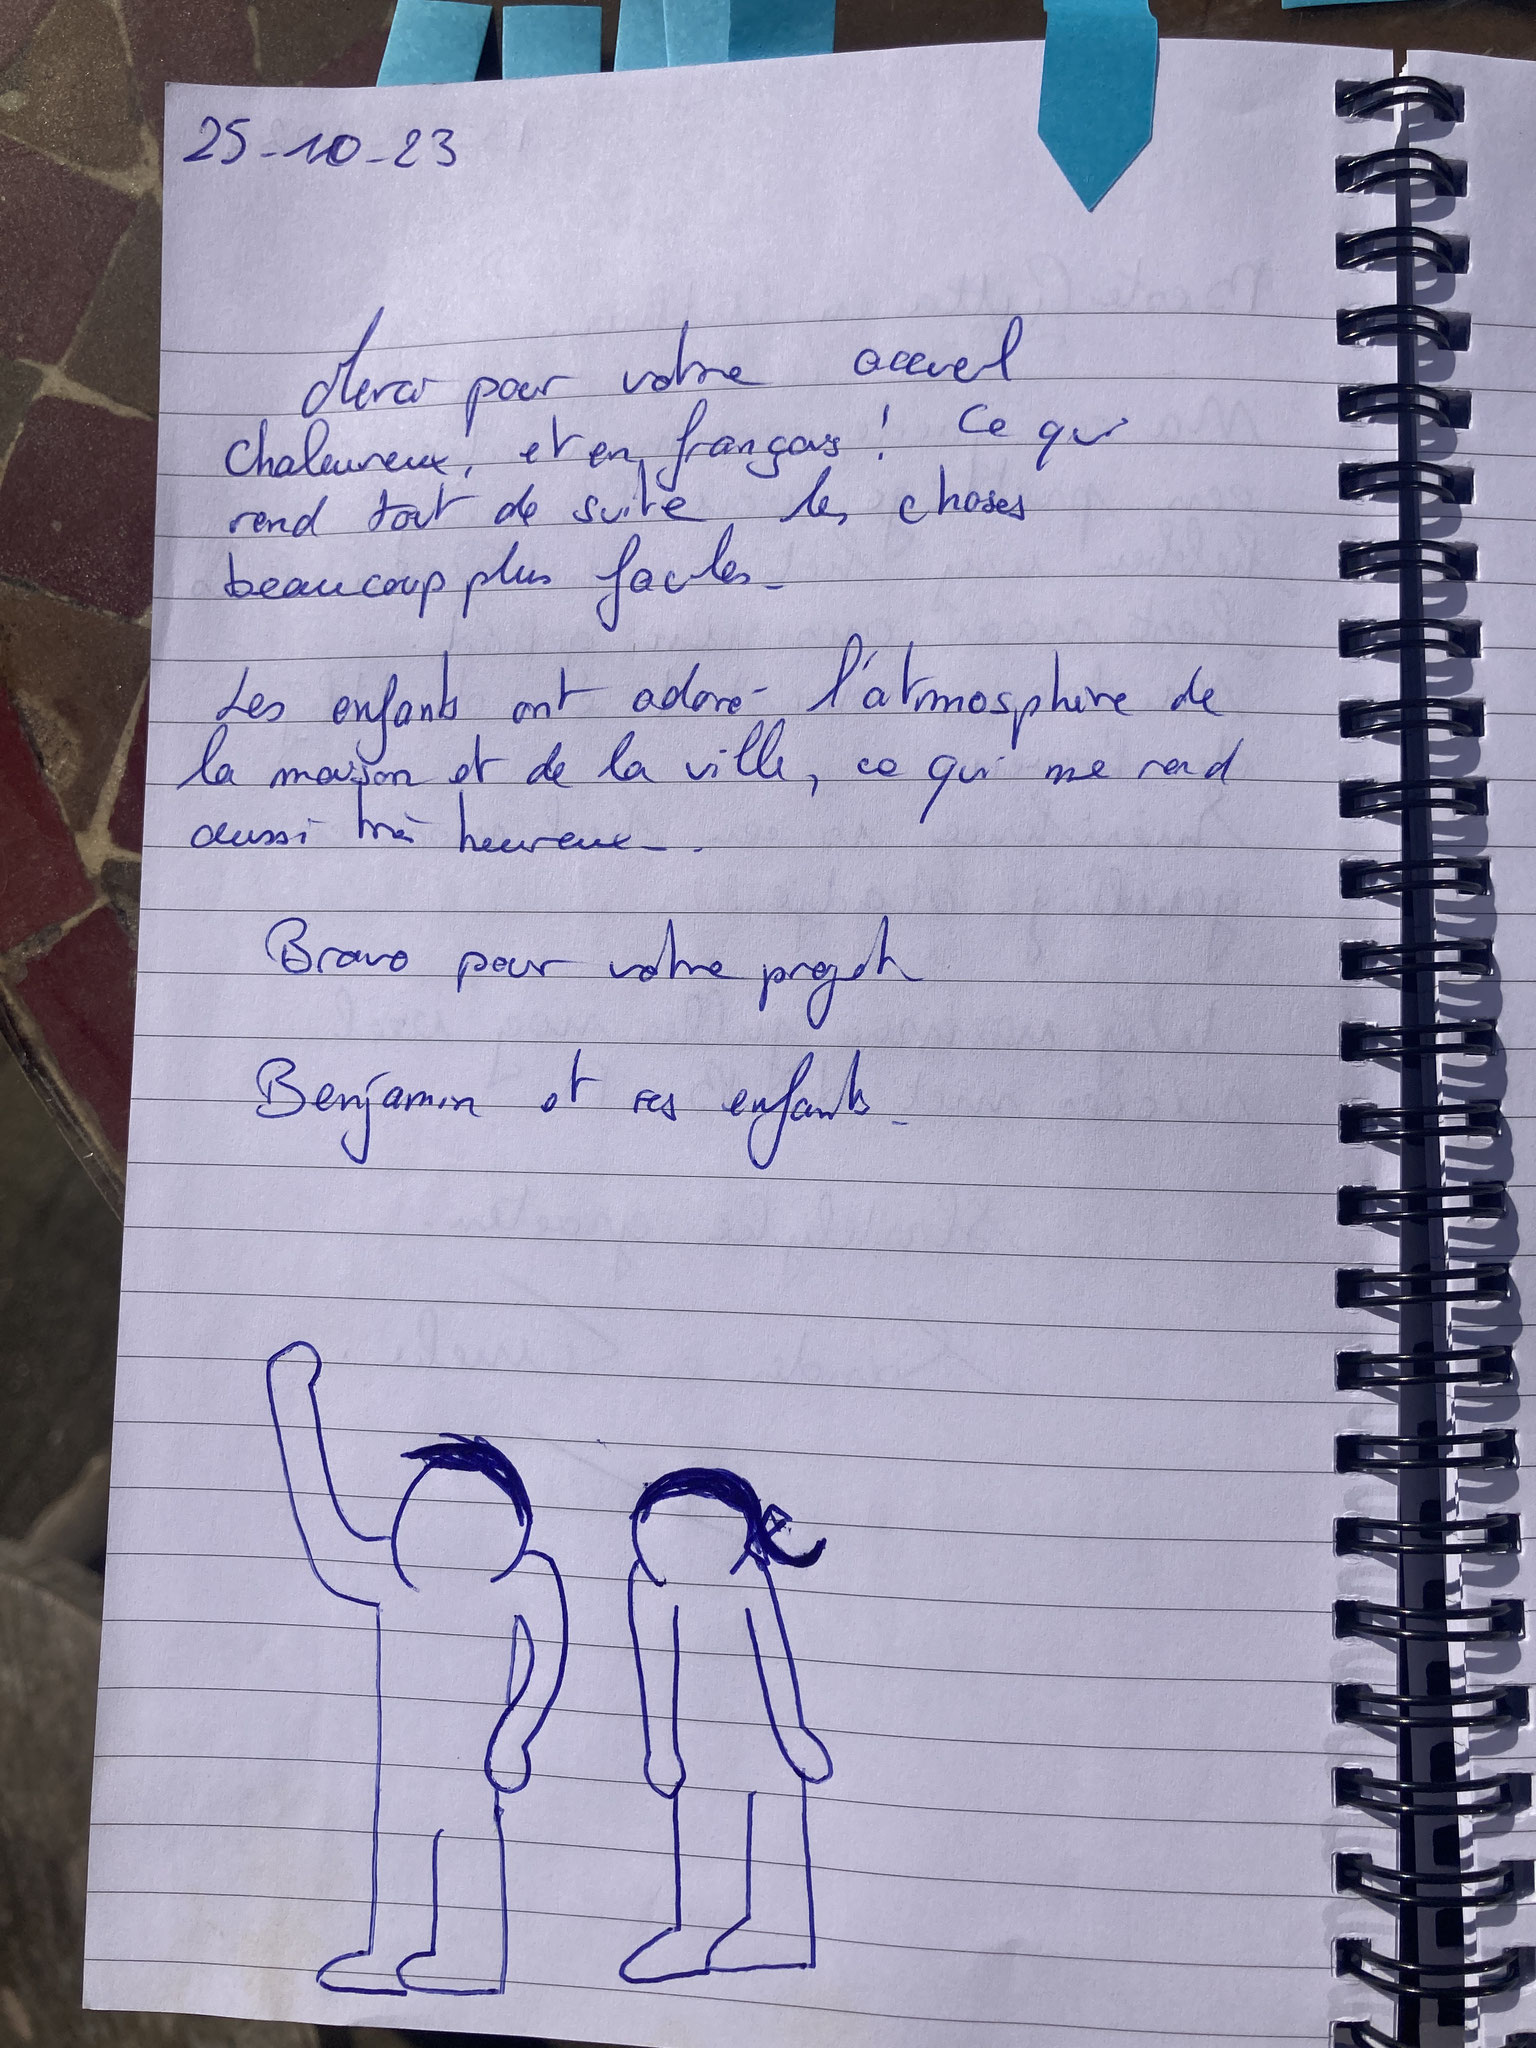 25-10-23
Merci pour votre accueil
chaleureux, et en français ! Ce qui
rend tout de suite les choses
beaucoup plus faciles.
Les enfants ont adoré l'atmosphère de
la maison et de la ville, ce qui me rend
aussi très heureux.
Bravo pour votre projet
Benjamin et ses enfants.